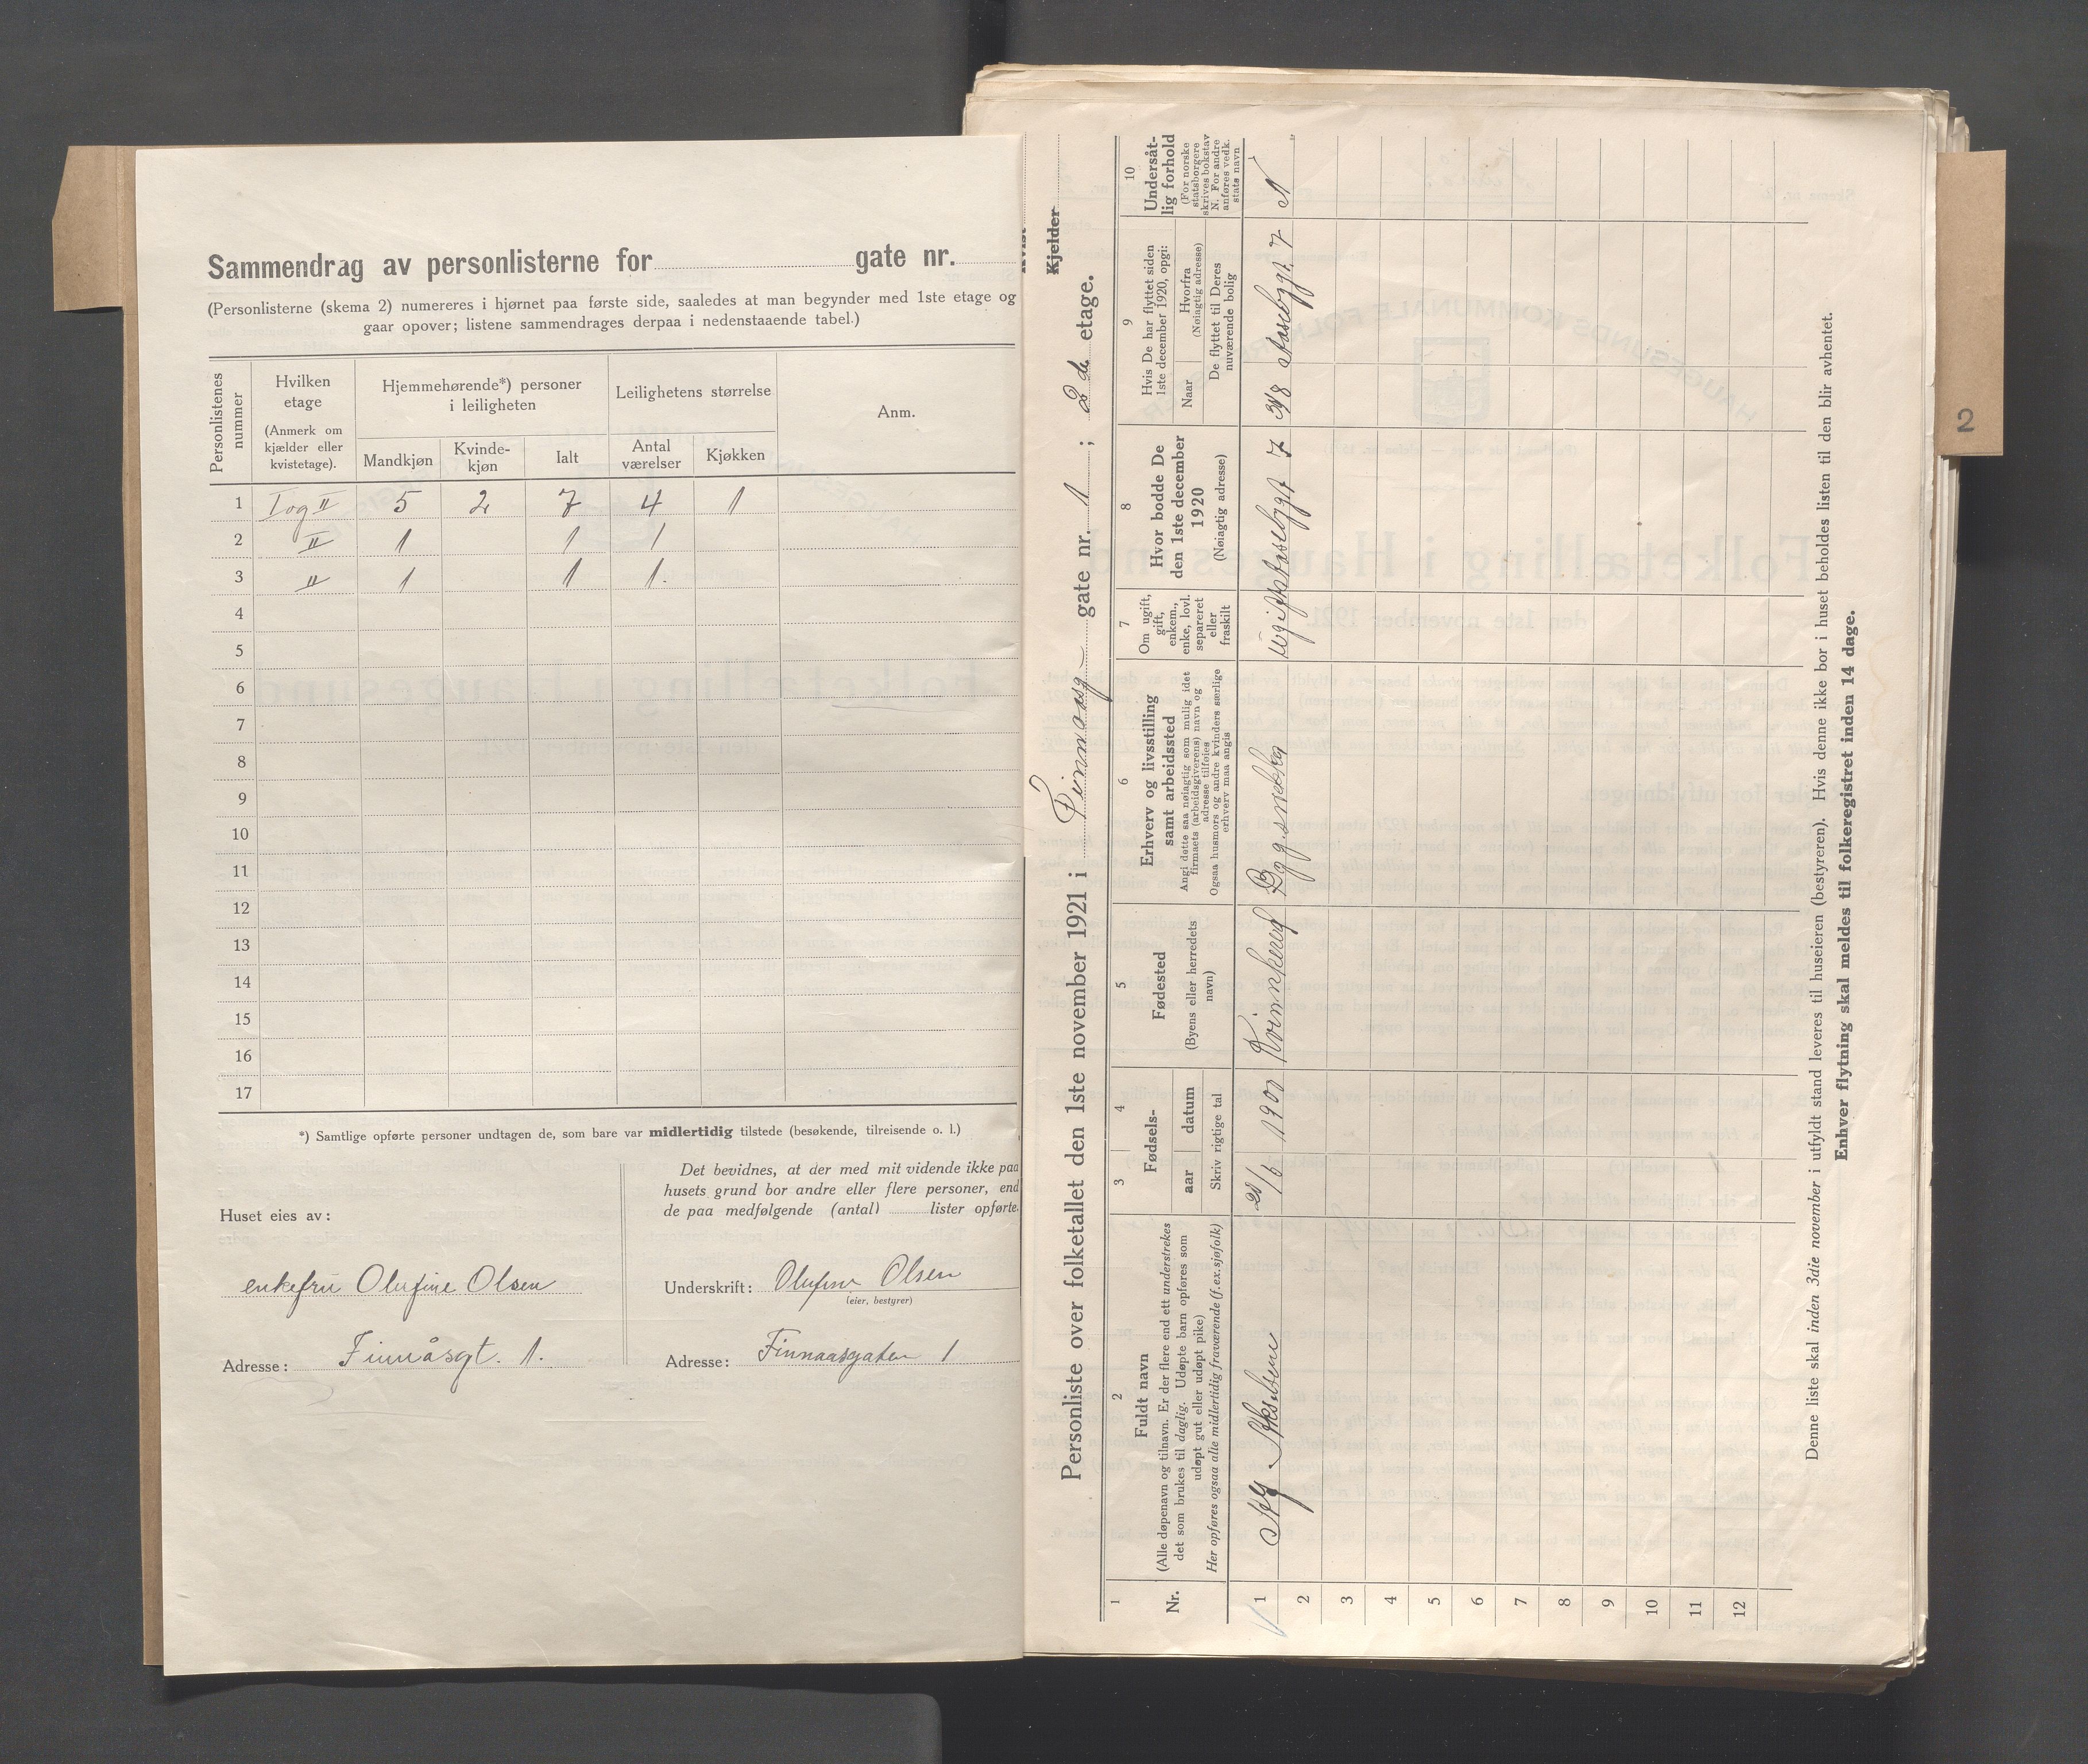 Sammendrag av personlisterne for gate nr.
(Personlisterne (skema 2) numereres i hjørnet paa første side, saaledes at man begynder med 1ste etage og
gaar opover; listene sammendrages derpaa i nedenstaaende tabel.)
Personlistenes nummer
Hvilken etage
(Anmerk om kjælder eller kvistetage).
Hjemmehørende*) personer i leiligheten
Mandkjøn
Kvinde-kjøn
Ialt
Leilighetens størrelse
Antal værelser
Kjøkken
Anm.
1 I og II 5 2 7 4 1
2 II 1 1 1
3 II 1 1 1.
4
5
6
7
8
9
10
11
12
13
14
15
16
17
*) Samtlige opførte personer undtagen de, som bare var midlertidig tilstede (besøkende, tilreisende o. l.)
Huset eies av:
enkefru Olufine Olsen
Adresse: Finnåsgt. 1.
Det bevidnes, at der med mit vidende ikke paa
husets grund bor andre eller flere personer, end
de paa medfølgende (antal) lister opførte.
Underskrift: Olufine Olsen
(eier, bestyrer)
Adresse: Finnaasgaten 1
Kvist
Kjelder
Personliste over folketallet den 1ste november 1921 i Finnaasg gate nr. 1 ; 2 de etage.
1
Nr.
2
Fuldt navn
(Alle døpenavn og tilnavn. Er der flere end ett understrekes
det som brukes til daglig. Udøpte barn opføres som
udøpt gut eller udøpt pike)
Her opføres ogsaa alle midlertidig fraværende (f. ex. sjøfolk)
3 4
Fødsels-
aar datum
Skriv rigtige tal
5
Fødested
(Byens eller herredets navn)
6
Erhverv og livsstilling
samt arbeidssted
Angi dette saa nøiagtig som mulig idet
firmaets (arbeidsgiverens) navn og
adresse tilføies
Ogsaa husmors og andre kvinders særlige
erhverv maa angis
7
Om ugift,
gift,
enkem.,
enke, lovl.
separeret
eller
fraskilt
8
Hvor bodde De
den 1ste december
1920
(Nøiagtig adresse)
9
Hvis De har flyttet siden
1ste december 1920, opgi:
Naar
Hvorfra
(Nøiagtig adresse)
De flyttet til Deres
nuværende bolig
10
Undersåt-
lig forhold
(For norske
statsborgere
skrives bokstav
N. For andre
anføres vedk.
stats navn
1 1900 ugift 7 7 N
2
3
4
5
6
7
8
9
10
11
12
Denne liste skal inden 3die november i utfyldt stand leveres til huseieren (bestyreren). Hvis denne ikke bor i huset beholdes listen til den blir avhentet.
Enhver flytning skal meldes til folkeregistret inden 14 dage.
2